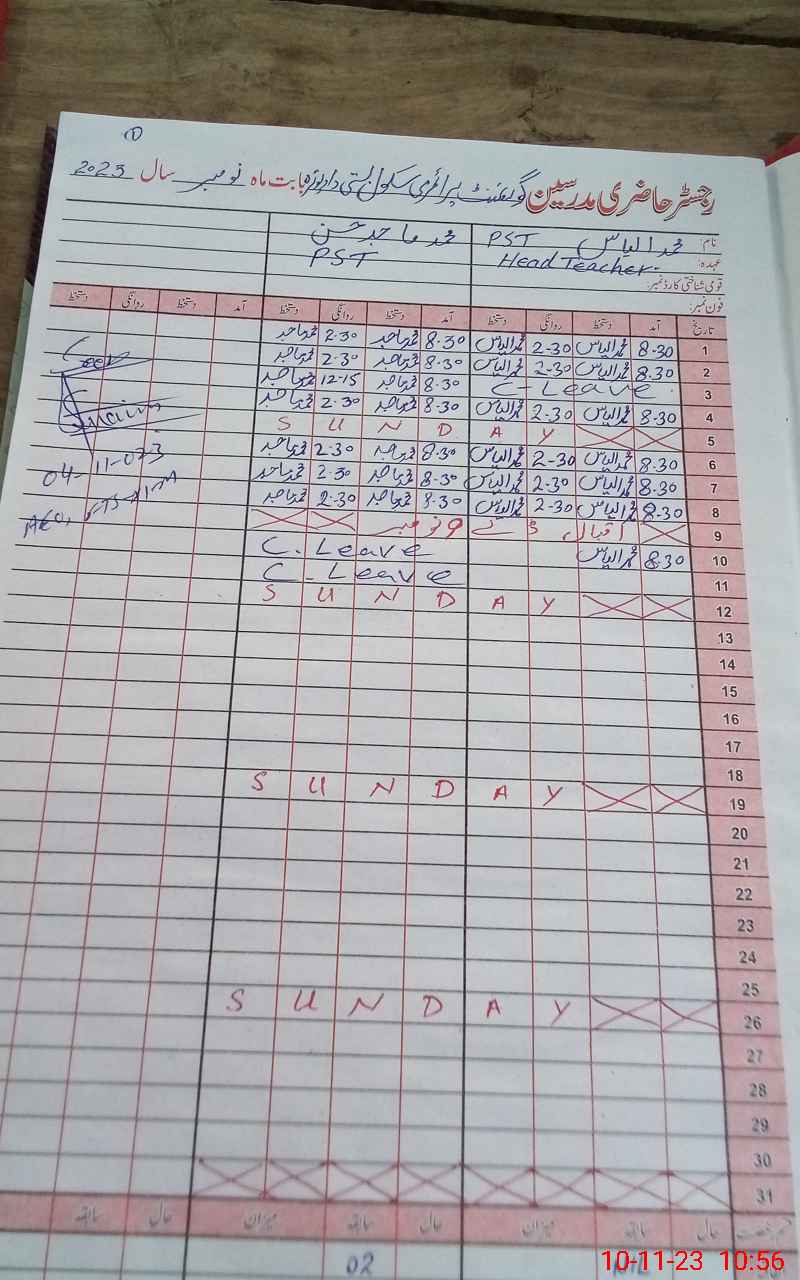 ①
رجسٹر حاضری مدرسین گورنمنٹ پرائمری سکول بستی داد پوترہ بابت ماہ نومبر سال 2023
نام: محمد الیاس PST محمد ماجد حسن
عہدہ: Head Teacher. PST
قومی شناختی کارڈ نمبر:
فون نمبر:
تاریخ آمد دستخط روانگی دستخط آمد دستخط روانگی دستخط آمد دستخط روانگی دستخط
1 8.30 محمد الیاس 2-30 محمد الیاس 8.30 محمد ماجد 2.30 محمد ماجد
2 8.30 محمد الیاس 2-30 محمد الیاس 8.30 محمد ماجد 2.30 محمد ماجد
Seen
3 C-Leave. 8.30 محمد ماجد 12-15 محمد ماجد
4 8.30 محمد الیاس 2.30 محمد الیاس 8.30 محمد ماجد 2.30 محمد ماجد
5 SUNDAY
6 8.30 محمد الیاس 2-30 محمد الیاس 8.30 محمد ماجد 2-30 محمد ماجد
04-11-023
7 8.30 محمد الیاس 2.30 محمد الیاس 8.30 محمد ماجد 2.30 محمد ماجد
8 8.30 محمد الیاس 2-30 محمد الیاس 8.30 محمد ماجد 2.30 محمد ماجد
AEO,
9 اقبال ڈے 9 نومبر
10 8.30 محمد الیاس C. Leave
11 C-Leave
12 SUNDAY
13
14
15
16
17
18
19 SUNDAY
20
21
22
23
24
25
26 SUNDAY
27
28
29
30
31
قسم رخصت حال سابقہ میزان حال سابقہ میزان حال سابقہ
02
10-11-23 10:56